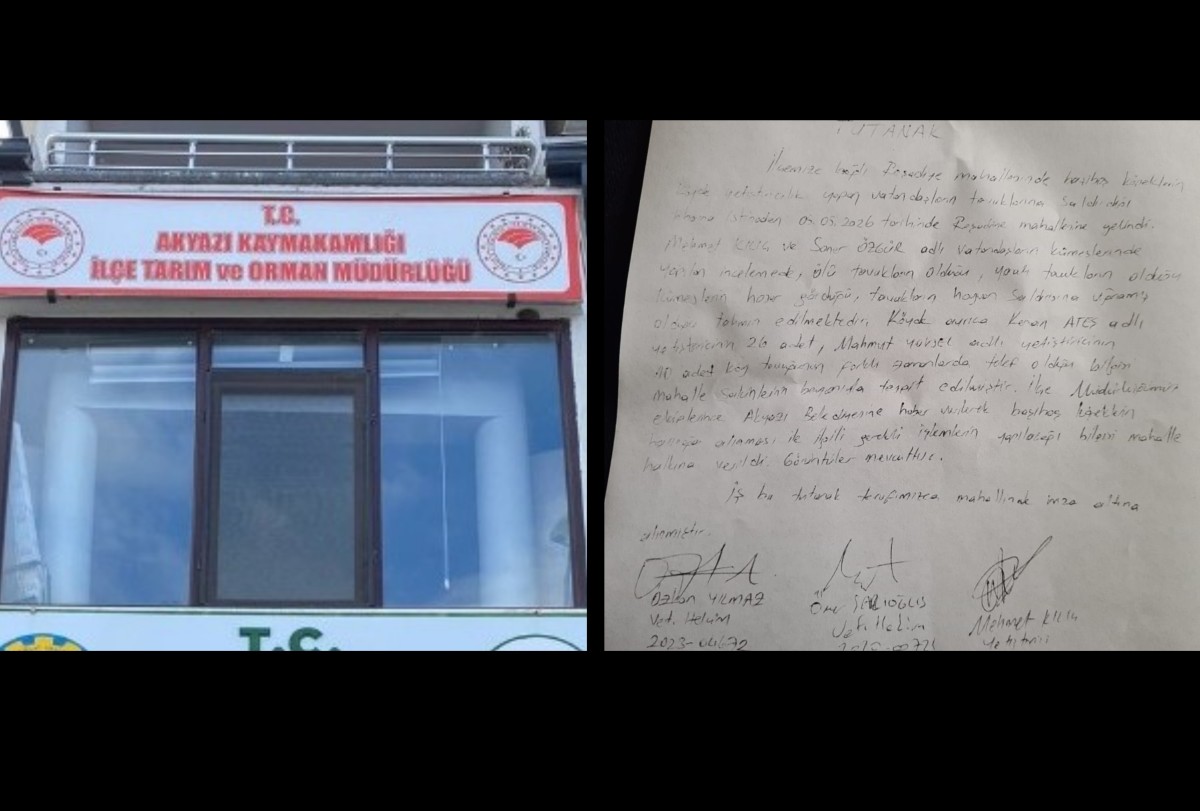 T.C.
AKYAZI KAYMAKAMLIĞI
İLÇE TARIM ve ORMAN MÜDÜRLÜĞÜ
T.C.
TUTANAK
İlçemize bağlı Reşadiye mahallesinde başıboş köpeklerin
yapan vatandaşların tavuklarına saldırdığı
istinaden 05.05.2026 tarihinde Reşadiye mahallesine gelindi.
Mehmet KILIÇ ve Soner ÖZGÜR adlı vatandaşların kümeslerinde
yapılan incelemede, ölü tavukların olduğu, yaralı tavukların olduğu
kümeslerin hasar gördüğü, tavukların hayvan saldırısına uğramış
olduğu tahmin edilmektedir. Köyde ayrıca Kenan ATEŞ adlı
yetiştiricinin 26 adet, Mahmut Yüksel adlı yetiştiricinin
40 adet köy tavuğunun farklı zamanlarda telef olduğu bilgisi
mahalle sakinlerin beyanıyla tespit edilmiştir. İlçe Müdürlüğümüz
ekiplerince Akyazı Belediyesine haber verilerek başıboş köpeklerin
alınması ile ilgili gerekli işlemlerin yapılacağı bilgisi mahalle
halkına verildi. Görüntüler mevcuttur.
İş bu tutanak tarafımızca mahallinde imza altına
alınmıştır.
Özkan YILMAZ
Vet. Hekim
2023-
Ömer
Vet. Hekim
Mehmet KILIÇ